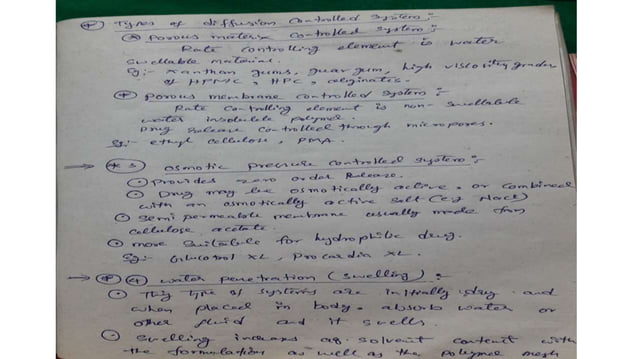 Types of diffusion controlled system :-
Porous matrix controlled system :-
Rate controlling element is water
swellable material.
Eg:- xanthan gums, guar gum, high viscosity grades
of HPMC, HPC, alginates.
Porous membrane controlled system :-
Rate controlling element is non-swellable
water insoluble polymer.
Drug release controlled through micropores.
Eg:- ethyl cellulose, PMA.
→ * 3 osmotic pressure controlled system :-
provides zero order release.
Drug may be osmotically active, or combined
with an osmotically active salt (eg NaCl)
semi permeable membrane usually made from
cellulose acetate.
more suitable for hydrophilic drug.
Eg:- Glucotrol XL, Procardia XL.
→ * 4 water penetration (swelling) :-
This type of systems are initially dry and
when placed in body absorb water or
other fluid and it swells.
Swelling increases aq. solvent content with
the formulation as well as the polymer mesh